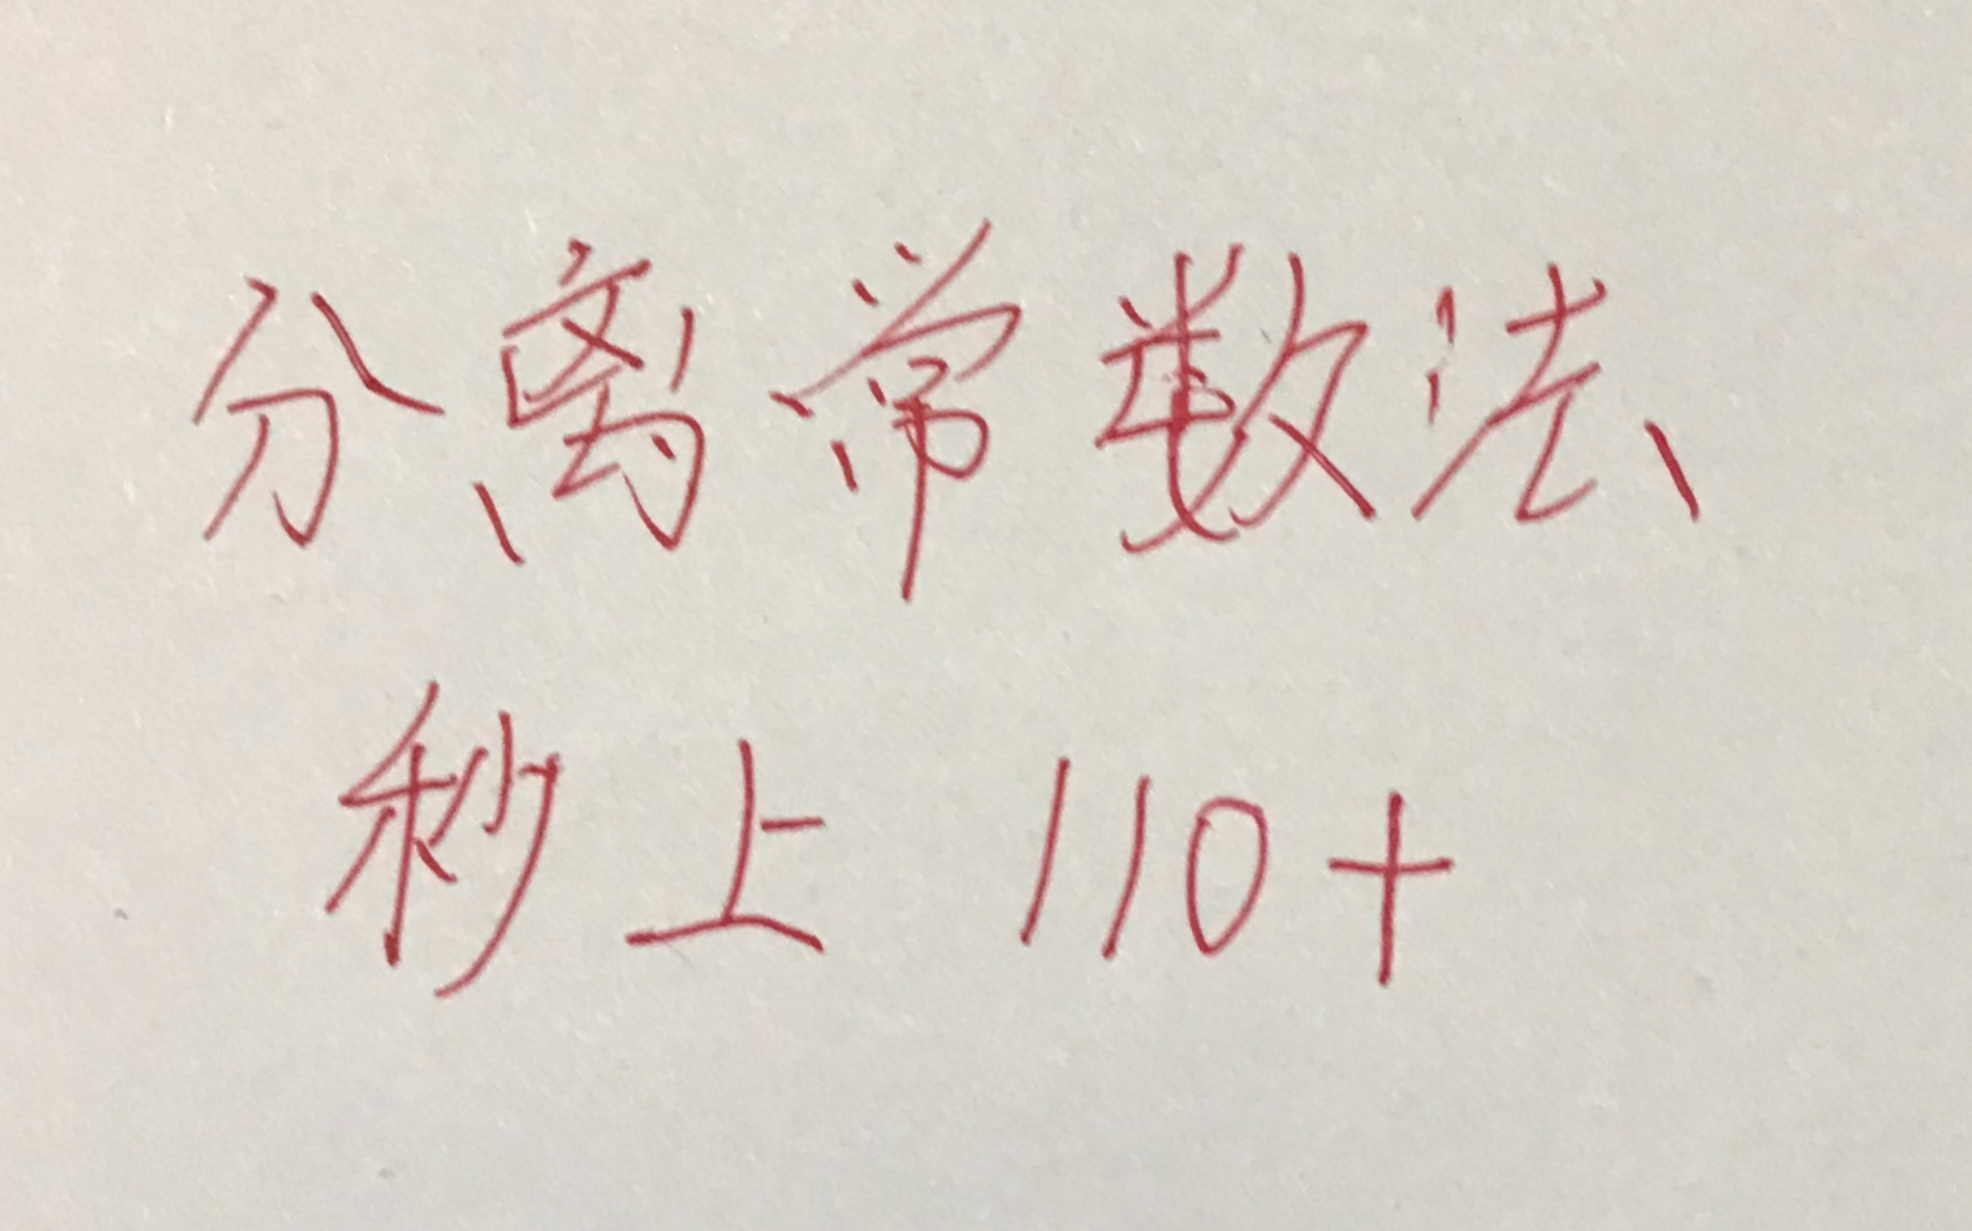 分离常数法
秒上 110+